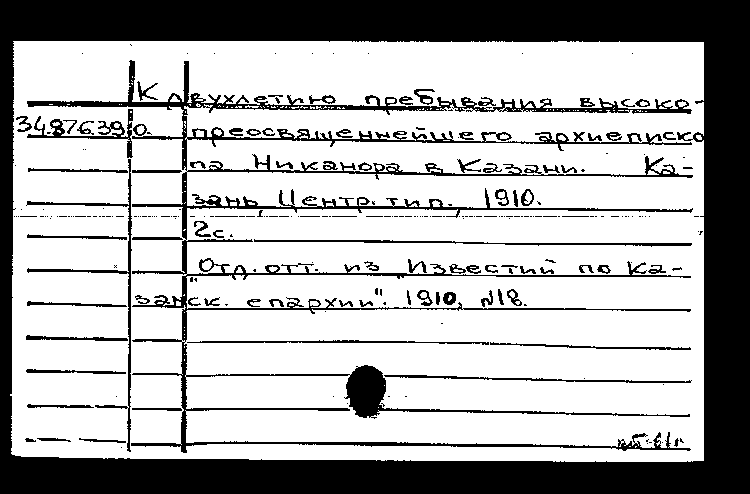 К двухлетию пребывания высоко-
34.876390. преосвященнейшего архиеписко
па Никанора в Казани. Ка-
зань, Центр. тип., 1910.
2с.
Отд. отт. из "Известий по Ка-
занск. епархии". 1910, №18.